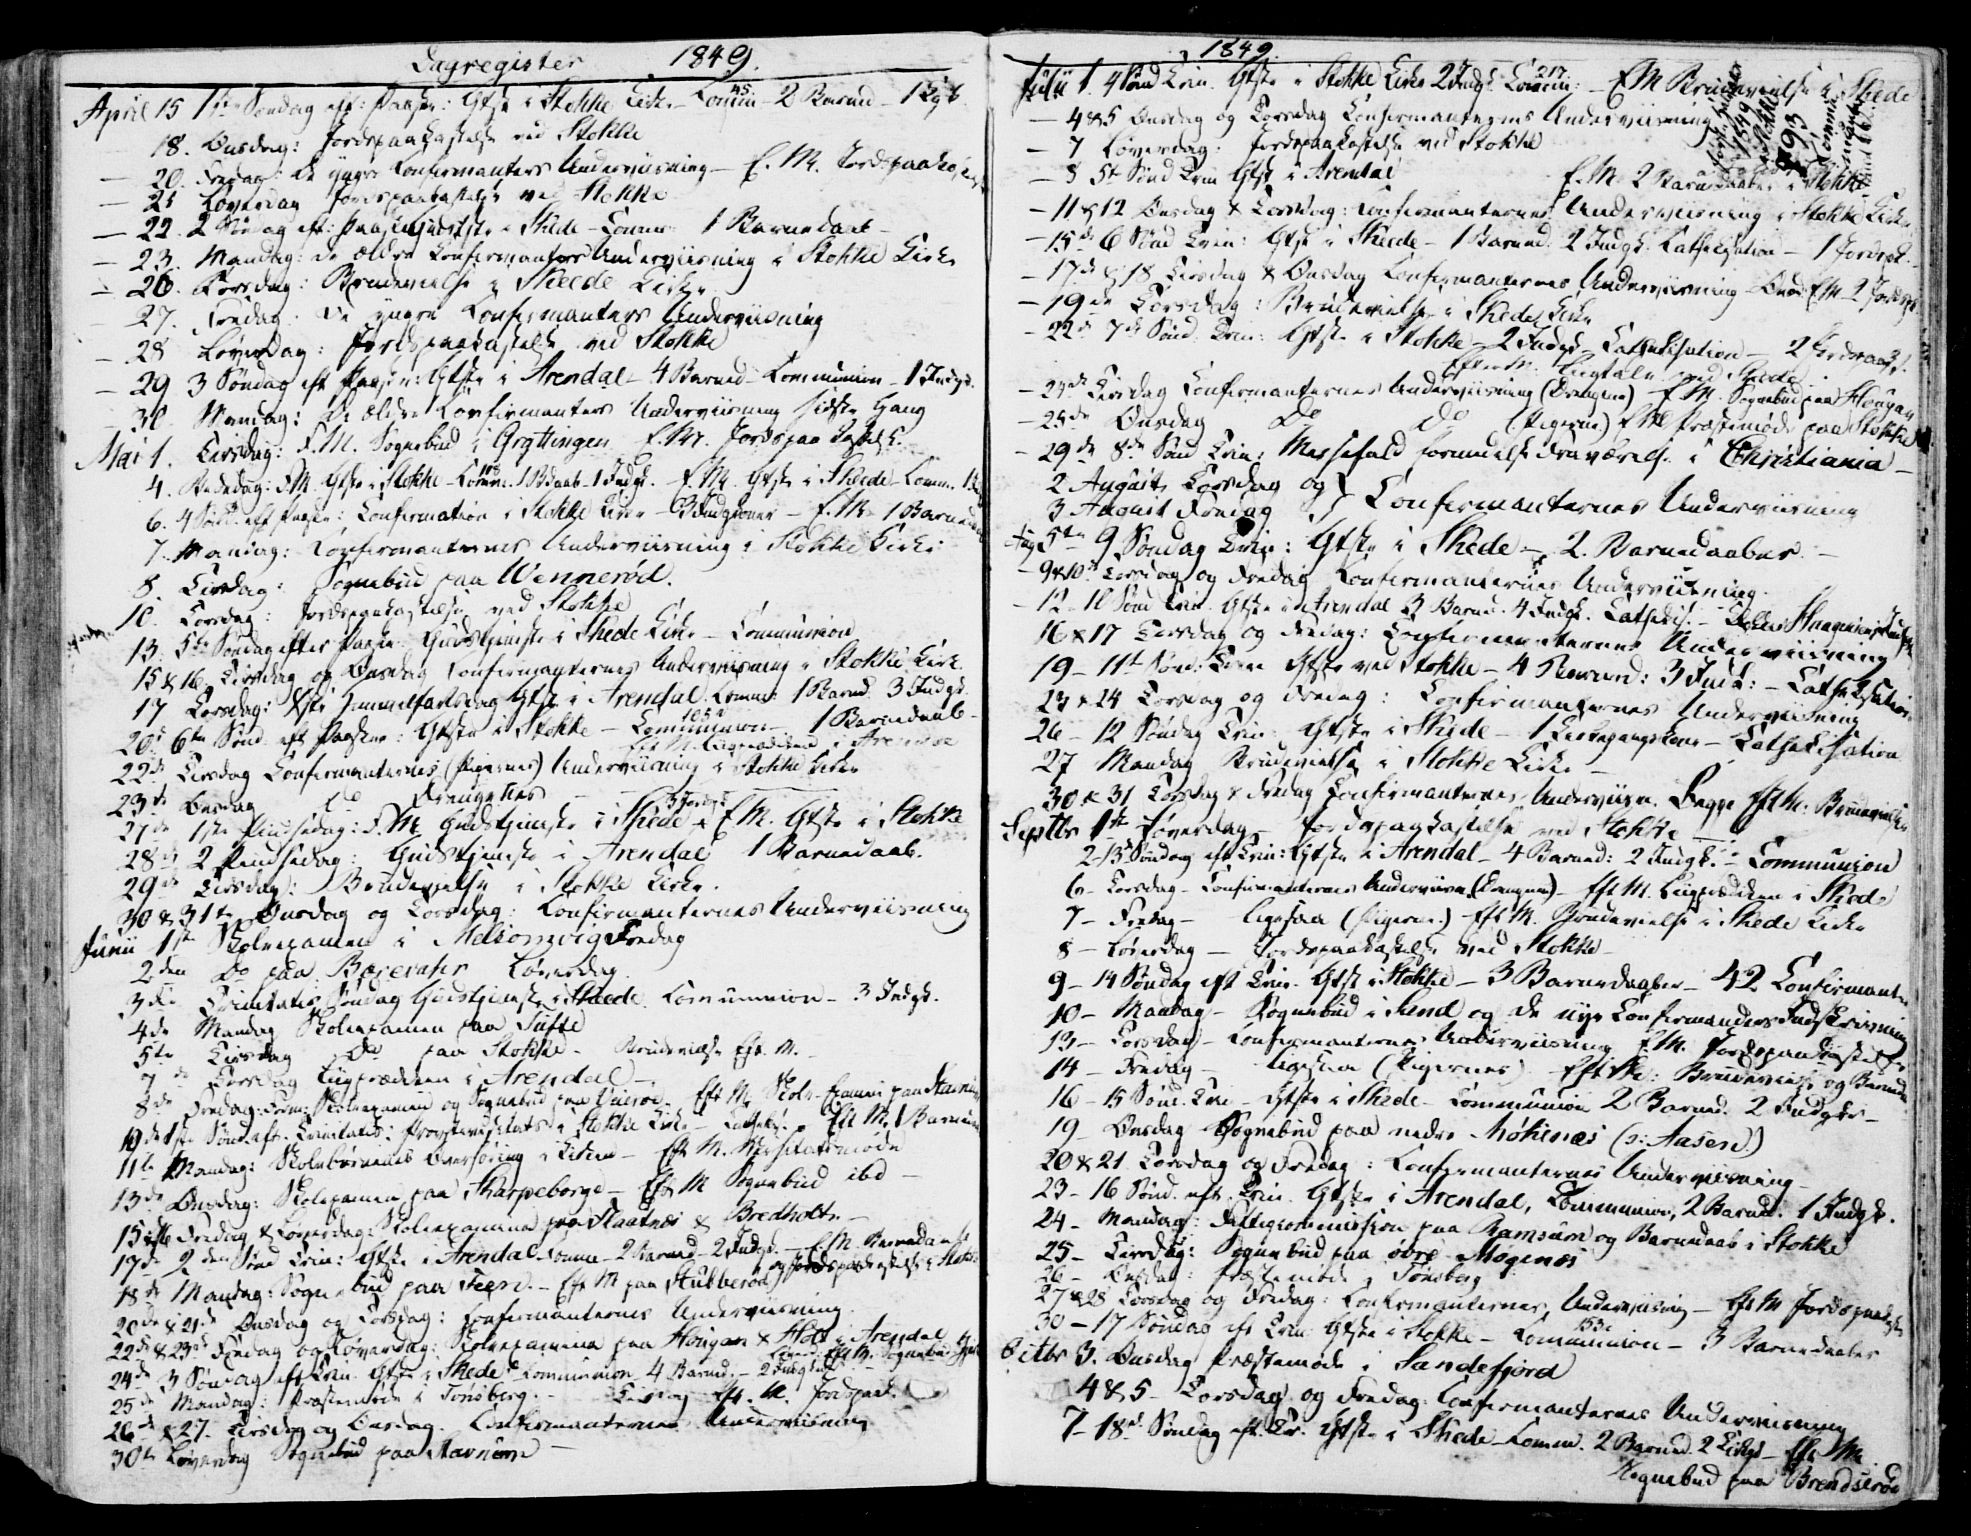 Dagregister 1849.
April 15 1ste Søndag eft: Paaske: Gtste i Stokke Kirke - Commun 45 - 2 Barned - 1
18. Onsdag: Jordspaakastelse ved Stokke
- 20. Fredag: De yngre Confirmanters Underviisning - E. M. Jordspaakast
- 21 Løverdag Jordspaakastelse ved Stokke
- 22. 2 Søndag eft: Paaske Gudstjste i Skede - Commun 1 Barnedaab -
- 23. Mandag: De ældre Confirmanters Underviisning i Stokke Kirke
- 26. Torsdag: Brudevielse i Skeede Kirke
27. Fredag: De yngre Confirmanters Underviisning
- 28 Løverdag: Jordspaakastelse ved Stokke
- 29 3 Søndag eft Paaske: Gtste i Arendal - 4 Barned - Communion - 1 Indgk.
30. Mandag: De ældre Confirmanters Underviisning sidste Gang
Mai 1. Tirsdag: F.M. Sognebud i Gryttingen E. M. Jordspaakastelse.
4. Bededag: FM Gtste i Stokke - Comm. 108 1 Bdaab. 1 Indgk. - E. M. Gtste i Skeede - Comm.
6. 4 Sønd. eft Paaske: Confirmation i Stokke Kirke - 3 Indgkoner - E. M. 1 Barned
7. Mandag: Confirmanternes Underviisning i Stokke Kirke
8. Tirsdag: Sognebud paa Wennerød.
10. Torsdag: Jordspaakastelse ved Stokke
13. 5te Søndag efter Paaske Gudstjeneste i Skede Kirke - Communion
15 & 16. Tirsdag og Onsdag Confirmanternes Underviisning i Stokke Kirke.
17 Torsdag: Xsti Himmelfartsdag Gtste i Arendal. Commun 1 Barned. 3 Indgk.
20. 6te Sønd. eft Paaske: Gtste i Stokke - Communion 105 - 1 Barnedaab -
Eft M. Liigprædiken i Arendal
22de Tirsdag Confirmanternes (Pigernes) Underviisning i Stokke Kirke
23de Onsdag do Drengenes
27de 1ste Pindsedag: F. M. Gudstjeneste i Skede - E. M. Gtste i Stokke
28de 2 Pindsedag: Gudstjeneste i Arendal 1 Barnedaab.
29de Tirsdag: Brudevielse i Stokke Kirke.
30 & 31te Onsdag og Torsdag: Confirmanternes Underviisning
Junii 1ste Skoleexamen i Melsomvig Fredag
2den Do paa Løverdag
3die Trinitatis Søndag Gudstjeneste i Skeede Communion - 3 Indgk.
4de Mandag Skoleexamen paa Tufte
5te Tirsdag Do paa Stokke - Brudevielse Eft. M. -
7de Torsdag Liigprædiken i Arendal -
8de Fredag: Form: Skoleexamen og Sognebud paa - Eft M. Skole-Examen paa
10de 1ste Sønd. eft. Trinitatis: Provstevisitats i Stokke Kirke - Cathekis. - Eft M. 1 Barned
11te Mandag: Skolebørnenes Overhøring i Kirken - Eft M. Visitatsmøde
13de Onsdag: Skoleexamen paa Skarpeborge - Eft M Sognebud ibd -
15 & 16 Fredag & Løverdag: Skoleexamen paa Slaatnes & Bredholt. -
17de 2den Sønd Trin: Gtste i Arendal Commun - 2 Barned - 2 Indgk. - E M. Barnedaab
og Jordspaakastelse i Stokke
18de Mandag: Sognebud paa Feen - Eft M paa Stubberød
20de & 21de Onsdag og Torsdag: Confirmanternes Underviisning.
22de & 23de Fredag og Løverdag: Skoleexamen paa Hougan & Holt i Arendal
Eft M. Sognebud
24de 3 Søndag eft Trin. Gtste i Skede Communion 4 Barned. - 2 Indgk.
25de Mandag: Præstemøde i Tønsberg. - Tirsdag Eft. M. Jordspaak.
26de & 27. Tirsdag og Onsdag. Confirmanternes Underviisning
30te Løverdag Sognebud paa Stavnum -
1849.
Julii 1. 4 Sønd Trin. Gtste i Stokke Kirke 2 Indgk. Commun: 217 - EM Brudevielse i Skede
- 4 & 5 Onsdag og Torsdag Confirmanternes Underviisning
1849
793
Communi
- 7 Løverdag: Jordspaakastelse ved Stokke
- 8 5te Sønd Trin Gtste i Arendal E. M. 2 Barnedaaber i Stokke
- 11 & 12 Onsdag & Torsdag: Confirmanternes Underviisning i Stokke Kirke
- 15de 6 Sønd Trin: Gtste i Skeede - 1 Barned. 2 Indgk. Cathekisation - 1 Jordspk.
- 17de & 18 Tirsdag & Onsdag Confirmanternes Underviisning - Onsd EM 2 Jordspk
- 19de Torsdag: Brudevielse i Skede Kirke
- 22de 7de Sønd Trin: Gtste i Stokke - 2 Indgk. Cathekisation - 2 Jordspaak.
Efterm. Liigtale ved Skede
- 24de Tirsdag Confirmanternes Underviisning (Drengene) - E M. Sognebud paa Hougan
- 25de Onsdag Do do (Pigerne) E M Præstemøde paa Stokke
- 29de 8de Sønd Trin: Messefald formedelst Fraværelse i Christiania -
2 August, Torsdag og
3 August Fredag } Confirmanternes Underviisning
Aug 5te 9 Søndag Trin: Gtste i Skede - 2. Barnedaaber. -
- 9 & 10de Torsdag og Fredag Confirmanternes Underviisning.
- 12 - 10 Sønd Trin. Gtste i Arendal 3 Barned. 4 Indgk. Cathekis. -
16 & 17 Torsdag og Fredag: Confirmanternes Underviisning
19 - 11te Sønd: Trin Gtste ved Stokke - 4 Barned: 3 Indg: - Cathekisation
23 & 24 Torsdag og Fredag: Confirmanternes Underviisning
26 - 12 Søndag Trin: Gtste i Skede - 1 Kirkegangskone - Cathekisation
27 Mandag Brudevielse i Stokke Kirke -
30 & 31 Torsdag & Fredag Confirmanternes Underviisn. Begge Eft M: Brudevielse
Septbr 1ste Løverdag - Jordspaakastelse ved Stokke -
2 - 13de Søndag eft Trin: Gtste i Arendal - 4 Barned: 2 Indgk. - Communion
6 - Torsdag - Confirmanternes Underviisn. (Drengene) - Eft M. Liigprædiken i Skede
7 - Fredag - ligesaa (Pigerne) Eft M. Brudevielse i Skede Kirke
8 - Løverdag - Jordspaakastelse ved Stokke -
9 - 14 Søndag eft Trin. Gtste i Stokke - 3 Barnedaaber - 42 Confirmanter
10 - Mandag - Sognebud i Sund og de nye Confirmanders Indskrivning
13 - Torsdag - Confirmanternes Underviisning E M. Jordspaakastelse
14 - Fredag - ligesaa (Pigernes) Eft M: Brudevielse og Barned
16 - 15 Sønd. Trin - Gtste i Skede - Communion 2 Barned. 2 Indgk. -
19 - Onsdag Sognebud paa nedre Møkenæs (o: Aasen)
20 & 21 Torsdag og Fredag: Confirmanternes Underviisning -
23 - 16 Sønd. eft. Trin. Gtste i Arendal, Communion, 2 Barned. 1 Indgk.
24 - Mandag: Fattigcommission paa Ramsum og Barnedaab i Stokke
25 - Tirsdag: Sognebud paa øvre Mogenæs
26 - Onsdag: Præstemøde i Tønsberg
27 & 28 Torsdag og Fredag: Confirmanternes Underviisning - Eft M Jordspaak
30 - 17 Søndag eft Trin Gtste i Stokke - Communion 153 - 3 Barnedaaber
Octbr 3. Onsdag Præstemøde i Sandefjord
4 & 5 - Torsdag og Fredag: Confirmanternes Underviisning
7 - 18de Søndag eft. Tr. Gtste i Skede - Comm. 2 Barned. 2 Indgk - Eft M.
Sognebud paa Brendserød